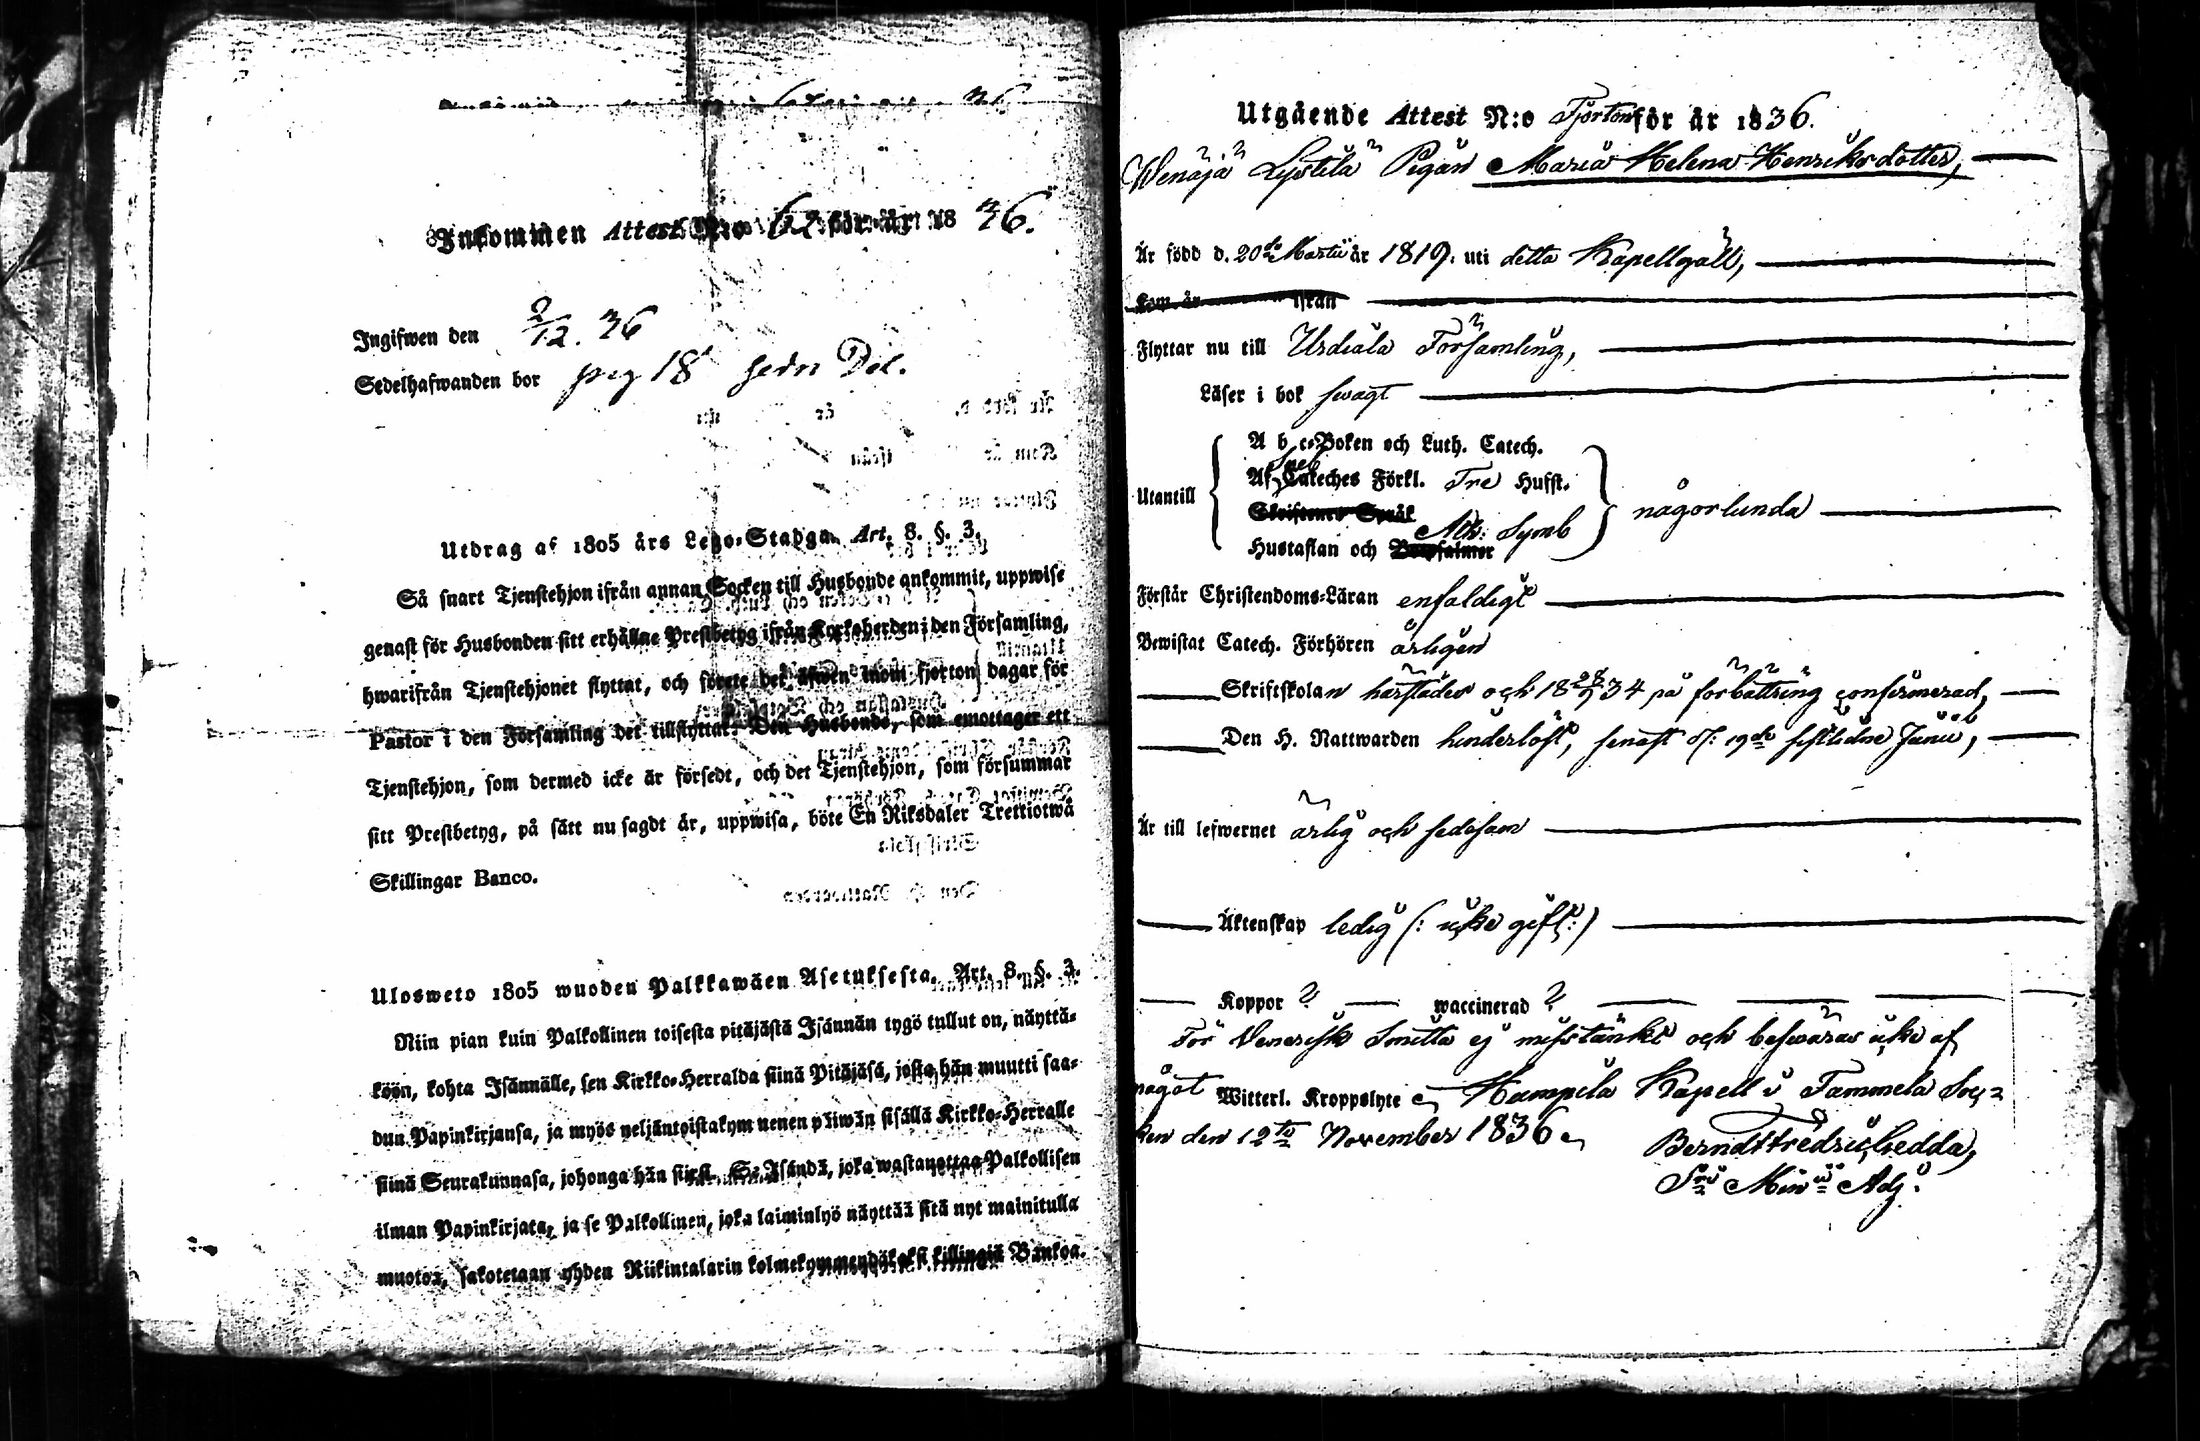 Inkommen Attest N:o 62 för år 1836.
Ingifwen den 2/12. 36
Sedelhafwanden bor pag 18 sedn Del.
Utdrag af 1805 års Lego-Stadga. Art. 8. §. 3.
Så snart Tjenstehjon ifrån annan Socken till Husbonde ankommit, uppwise
genast för Husbonden sitt erhållne Prestbetyg ifrån Kyrkoherden i den Församling,
hwarifrån Tjenstehjonet flyttat, och förete det äfwen inom fjorton dagar för
Pastor i den Församling det tillflyttat. Den Husbonde, som emottager ett
Tjenstehjon, som dermed icke är försedt, och det Tjenstehjon, som försummar
sitt Prestbetyg, på sätt nu sagdt är, uppwisa, böte En Riksdaler Trettiotwå
Skillingar Banco.
Ulosweto 1805 wuoden Palkkawäen Asetuksesta. Art. 8. §. 3.
Niin pian kuin Palkollinen toisesta pitäjästä Isännän tygö tullut on, näyttä-
köön, kohta Isännälle, sen Kirkko-Herralda siinä Pitäjäsä, josta hän muutti saa-
dun Papinkirjansa, ja myös neljäntoistakymmenen päiwän sisällä Kirkko-Herralle
siinä Seurakunnasa, johonga hän siirsi. Se Isändä, joka wastanottaa Palkollisen
ilman Papinkirjata, ja se Palkollinen, joka laiminlyö näyttää sitä nyt mainitulla
muotoa, sakotetaan yhden Riikintalarin kolmekymmendäkaksi killingiä Bankoa.
Utgående Attest N:o Fjorton för år 1836.
Wenäjä Lystilä Pigan Maria Helena Henriksdotter,
Är född d. 20de Martii år 1819. uti detta Kapellgäll,
Kom år ifrån
Flyttar nu till Urdiala Församling,
Läser i bok swagt
Utantill
A b c-Boken och Luth. Catech.
Af Cateches Förkl. Tre Hufst.
Skriftenes Språk
Ath: Symb
Hustaflan och Botpsalmer
någorlunda
Förstår Christendoms-Läran enfaldigt
Bewistat Catech. Förhören årligen
Skriftskolan härstädes och 18 28/9 34 på förbättring confirmerad,
Den H. Nattwarden hinderlöst, senast d. 19de sistledne Junii,
Är till lefwernet ärlig och sedesam
Äktenskap ledig (: icke gift:)
Koppor ? waccinerad ?
För Venerisk Smitta ej misstänkt och beswäras icke af
något Witterl. Kroppslyte Humpila Kapell i Tammela Soc-
ken den 12te November 1836
Berndt Fredric Hedda,
Sri Minii Adj.